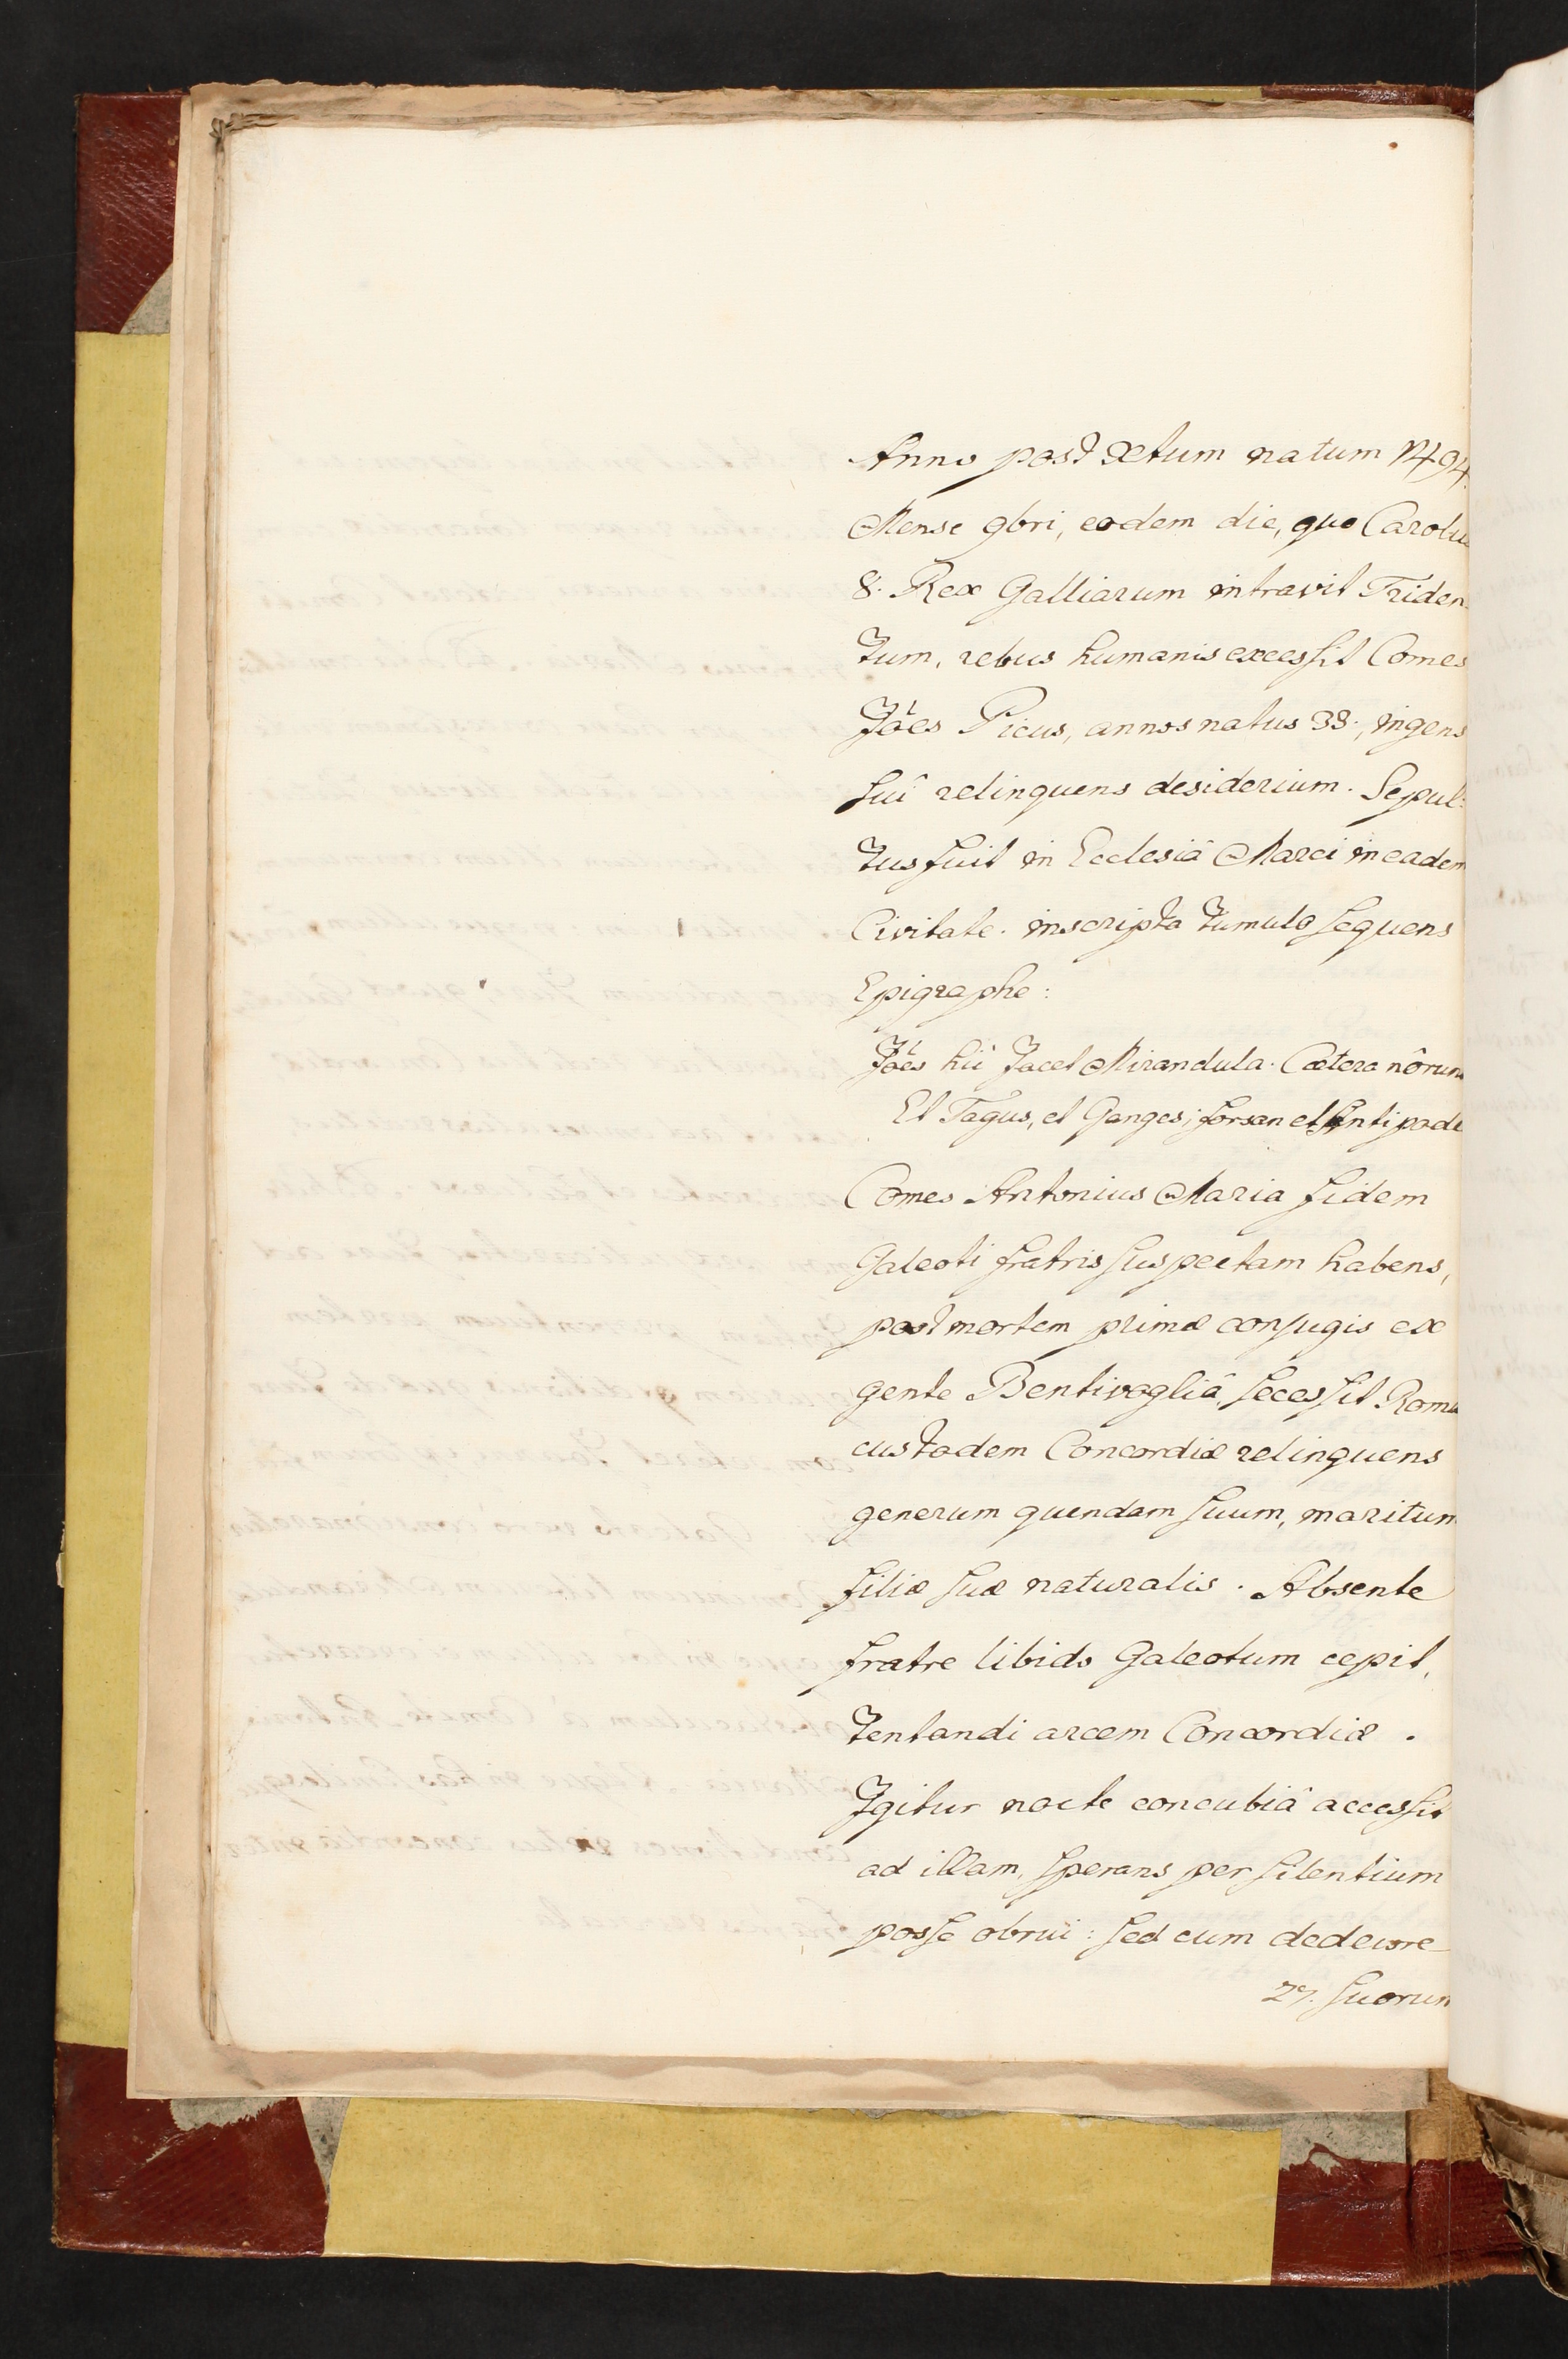 Anno post Xtum natum 1494.
Mense 9bri, eodem die, quo Carolu
8. Rex Galliarum intravit Triden:
tum, rebus humanis excessit Comes
Jôes Picus, annos natus 33., ingens
sui relinquens desiderium. Sepul:
tus fuit in Ecclesiâ Marci in eadem
Civitate. inscripta tumulo sequens
Epigraphe:
Jôes hìc Jacet Mirandula. Cætera nôrunt
Et Tagus, et Ganges; forsan et Antipode
Comes Antonius Maria fidem
Galeoti fratris suspectam habens,
post mortem primæ conjugis ex
gente Bentivogliâ, secessit Roma
custodem Concordiæ relinquens
generum quendam suum, maritum
filiæ suæ naturalis. Absente
fratre libido Galeotum cepit,
tentandi arcem Concordiæ.
Igitur nocte concubiâ accessit
ad illam, sperans per silentium
posse obrui: sed cum dedecore
27. suorum